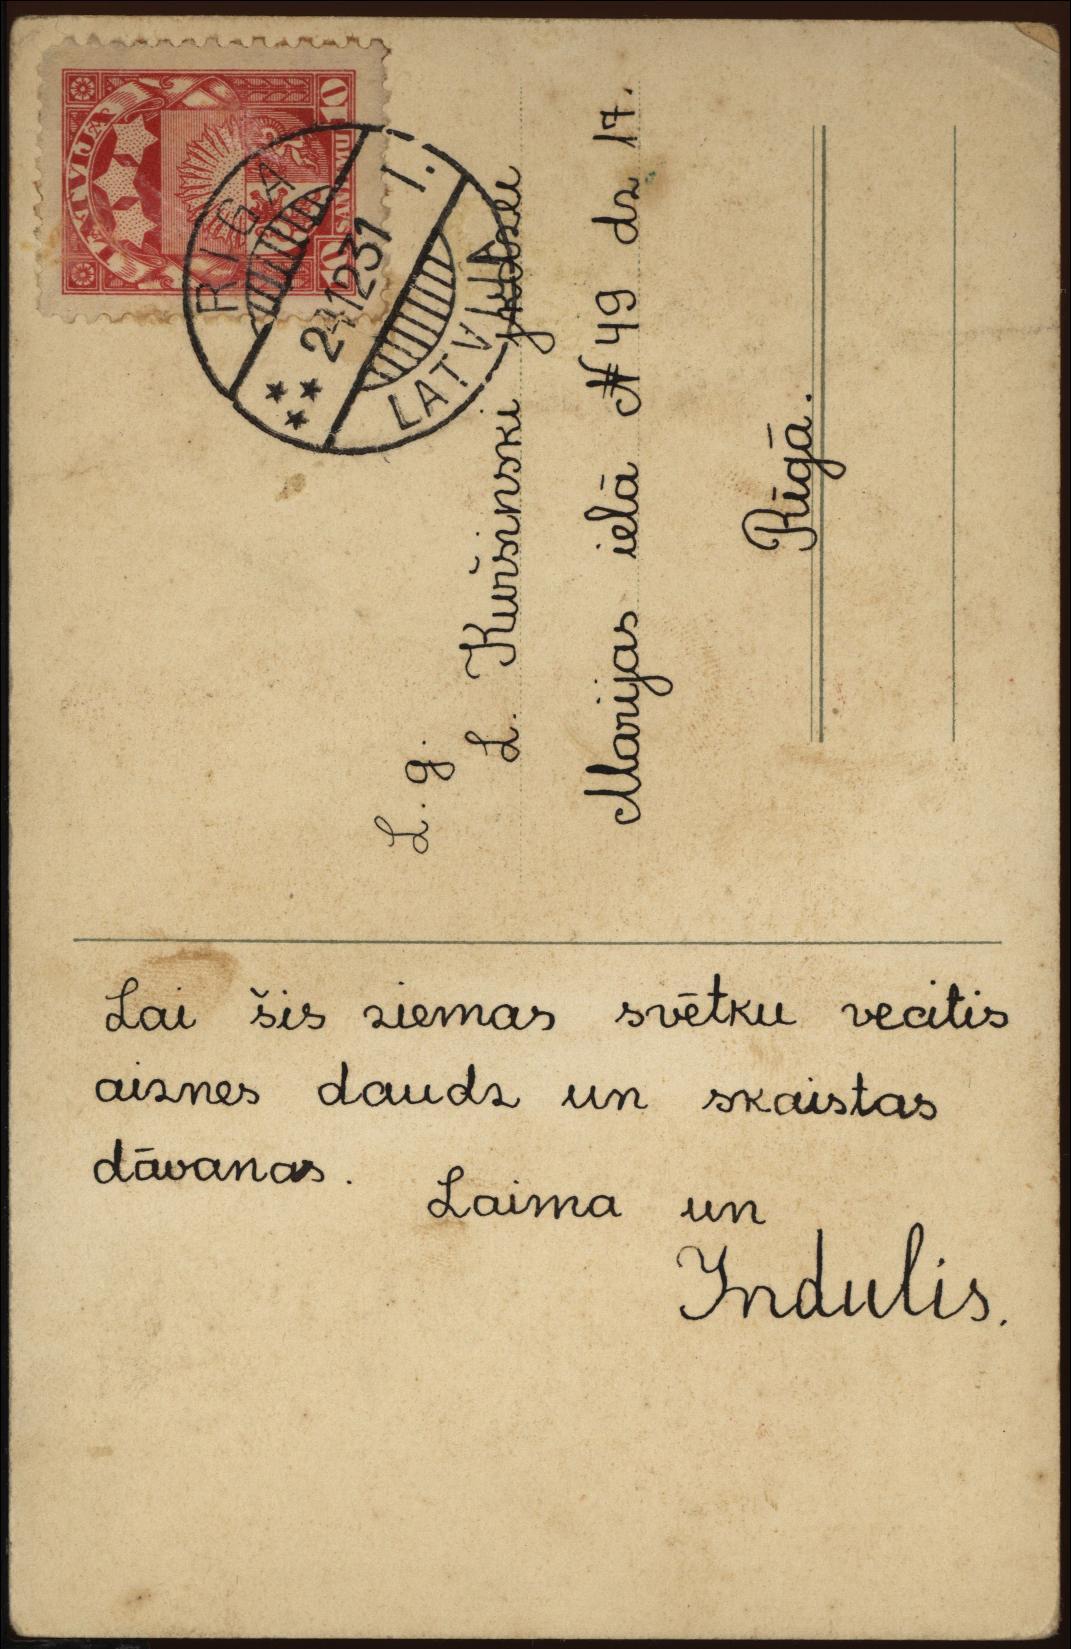 Lai šis ziemas svētku vecitis
aiznes daudz un skaistas
dāvanas.
Laima un
Indulis.
L. g.
L. Kuršinski jkdzei
Marijas ielā № 49 dz 17.
Rīgā.
LATVIJA
10 10
RIGA
24 12 31
1.
LATVIJA